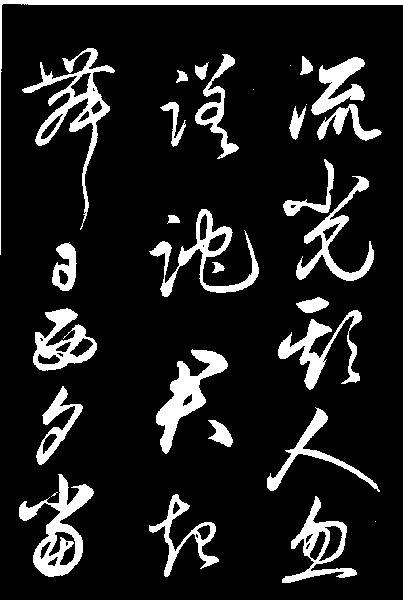 流光欺人忽
蹉跎君起
舞日西夕當